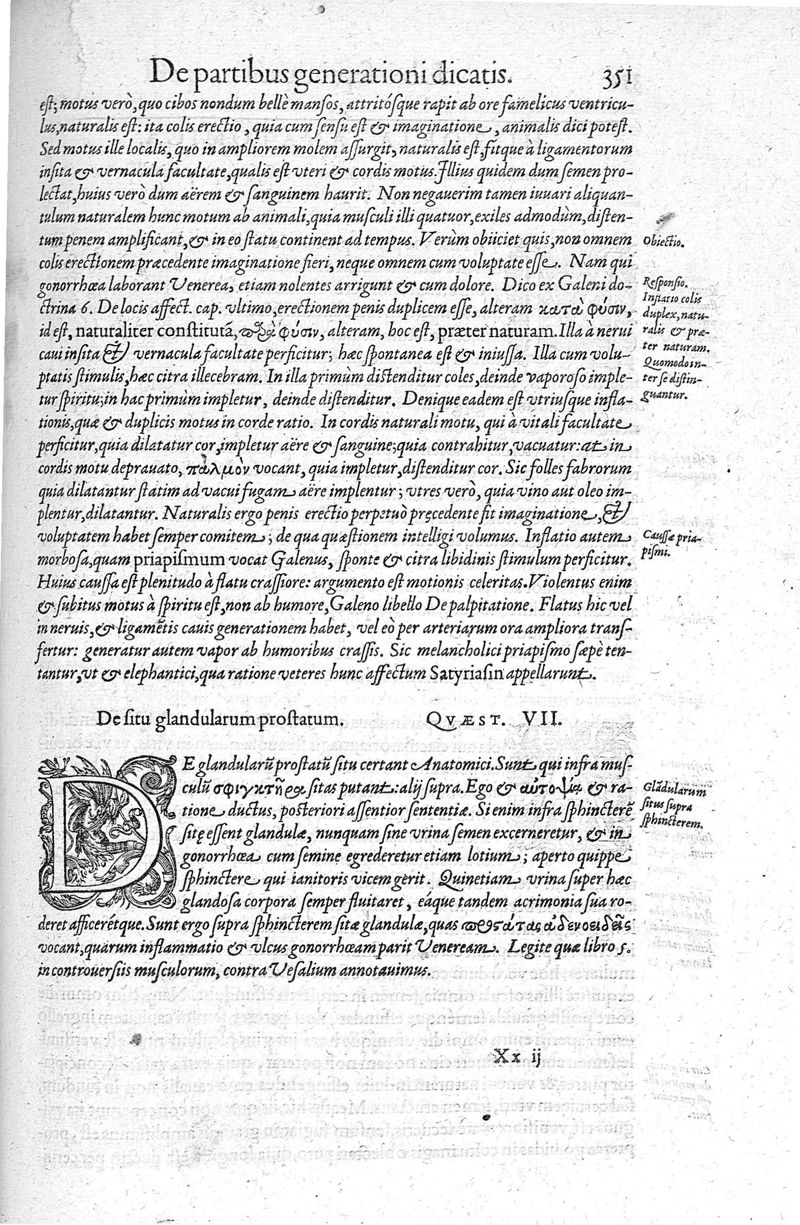 De partibus generationi dicatis. 351
est; motus verò, quo cibos nondum bellè mansos, attritósque rapit ab ore famelicus ventricu-
lus, naturalis est: ita colis erectio, quia cum sensu est & imaginatione, animalis dici potest.
Sed motus ille localis, quo in ampliorem molem assurgit, naturalis est, fitque à ligamentorum
insita & vernacula facultate, qualis est vteri & cordis motus. Illius quidem dum semen pro-
lectat, huius verò dum aërem & sanguinem haurit. Non negauerim tamen iuuari aliquan-
tulum naturalem hunc motum ab animali, quia musculi illi quatuor, exiles admodùm, disten-
tum penem amplificant, & in eo statu continent ad tempus. Verùm obiiciet quis, non omnem
colis erectionem præcedente imaginatione fieri, neque omnem cum voluptate esse. Nam qui
gonorrhœa laborant Venerea, etiam nolentes arrigunt & cum dolore. Dico ex Galeni do-
ctrina 6. De locis affect. cap. vltimo, erectionem penis duplicem esse, alteram κατὰ φύσιν,
id est, naturaliter constitutã, παρὰ φύσιν, alteram, hoc est, præter naturam. Illa à nerui
caui insita & vernacula facultate perficitur; hæc spontanea est & iniussa. Illa cum volu-
ptatis stimulis, hæc citra illecebram. In illa primùm distenditur coles, deinde vaporoso imple-
tur spiritu; in hac primùm impletur, deinde distenditur. Denique eadem est vtriusque infla-
tionis, quæ & duplicis motus in corde ratio. In cordis naturali motu, qui à vitali facultate
perficitur, quia dilatatur cor, impletur aëre & sanguine; quia contrahitur, vacuatur: at in
cordis motu deprauato, παλμὸν vocant, quia impletur, distenditur cor. Sic folles fabrorum
quia dilatantur statim ad vacui fugam aëre implentur; vtres verò, quia vino aut oleo im-
plentur, dilatantur. Naturalis ergo penis erectio perpetuò pręcedente fit imaginatione, &
voluptatem habet semper comitem; de qua quæstionem intelligi volumus. Inflatio autem
morbosa, quam priapismum vocat Galenus, sponte & citra libidinis stimulum perficitur.
Huius caussa est plenitudo à flatu crassiore: argumento est motionis celeritas. Violentus enim
& subitus motus à spiritu est, non ab humore, Galeno libello De palpitatione. Flatus hic vel
in neruis, & ligamẽtis cauis generationem habet, vel eò per arteriarum ora ampliora trans-
fertur: generatur autem vapor ab humoribus crassis. Sic melancholici priapismo sæpè ten-
tantur, vt & elephantici, qua ratione veteres hunc affectum Satyriasin appellarunt.
Obiectio.
Responsio.
Inflatio colis
duplex, natu-
ralis & præ-
ter naturam.
Quomodo in-
ter se distin-
guantur.
Caussæ pria-
pismi.
De situ glandularum prostatum. QVÆST. VII.
DE glandularũ prostatũ situ certant Anatomici. Sunt qui infra mus-
culũ σφιγκτῆρα sitas putant: alij supra. Ego & αὐτοψίᾳ & ra-
tione ductus, posteriori assentior sententiæ. Si enim infra sphincterẽ
sitę essent glandulæ, nunquam sine vrina semen excerneretur, & in
gonorrhœa cum semine egrederetur etiam lotium; aperto quippe
sphinctere qui ianitoris vicem gerit. Quinetiam vrina super hæc
glandosa corpora semper fluitaret, eáque tandem acrimonia sua ro-
deret afficerétque. Sunt ergo supra sphincterem sitæ glandulæ, quas προστάτας ἀδενοειδεῖς
vocant, quarum inflammatio & vlcus gonorrhœam parit Veneream. Legite quæ libro 5.
in controuersiis musculorum, contra Vesalium annotauimus.
Glãdularum
situs supra
sphincterem.
Xx ij